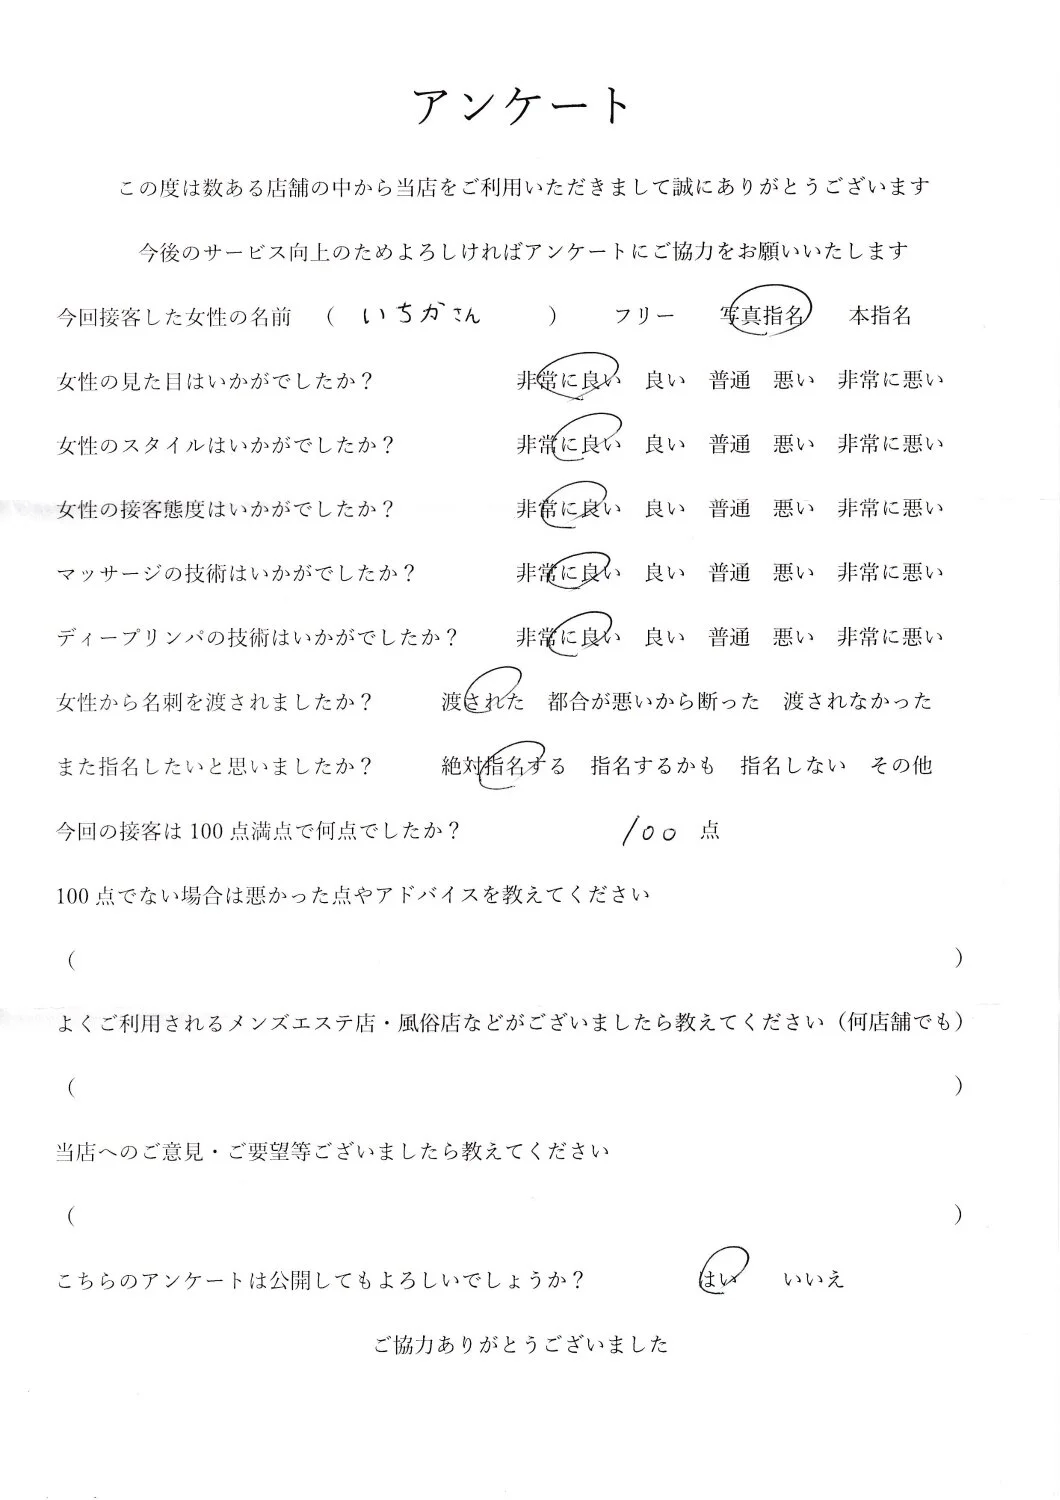 アンケート
この度は数ある店舗の中から当店をご利用いただきまして誠にありがとうございます
今後のサービス向上のためよろしければアンケートにご協力をお願いいたします
今回接客した女性の名前 （ いちかさん ） フリー 写真指名 本指名
女性の見た目はいかがでしたか？ 非常に良い 良い 普通 悪い 非常に悪い
女性のスタイルはいかがでしたか？ 非常に良い 良い 普通 悪い 非常に悪い
女性の接客態度はいかがでしたか？ 非常に良い 良い 普通 悪い 非常に悪い
マッサージの技術はいかがでしたか？ 非常に良い 良い 普通 悪い 非常に悪い
ディープリンパの技術はいかがでしたか？ 非常に良い 良い 普通 悪い 非常に悪い
女性から名刺を渡されましたか？ 渡された 都合が悪いから断った 渡されなかった
また指名したいと思いましたか？ 絶対指名する 指名するかも 指名しない その他
今回の接客は 100 点満点で何点でしたか？ 100 点
100 点でない場合は悪かった点やアドバイスを教えてください
（ ）
よくご利用されるメンズエステ店・風俗店などがございましたら教えてください（何店舗でも）
（ ）
当店へのご意見・ご要望等ございましたら教えてください
（ ）
こちらのアンケートは公開してもよろしいでしょうか？ はい いいえ
ご協力ありがとうございました